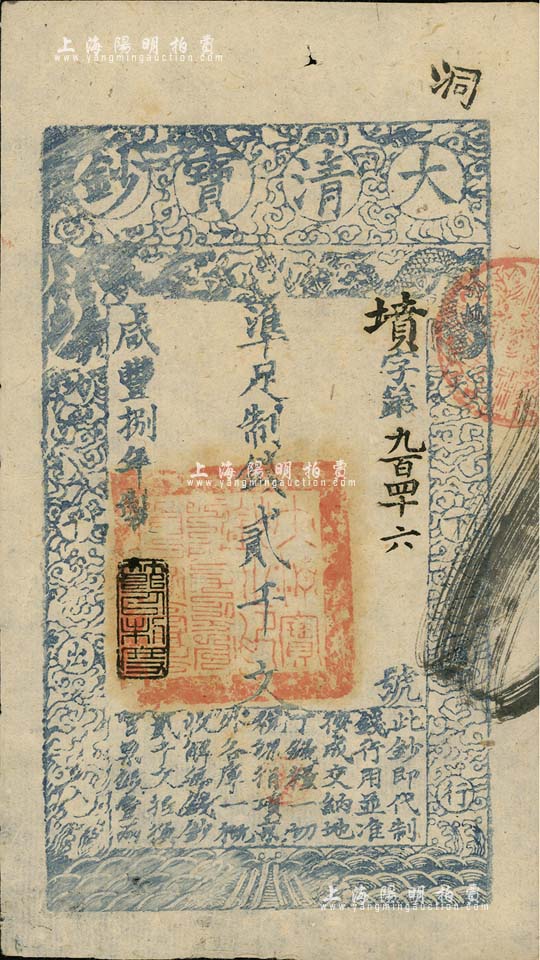 上海陽明拍賣
www.yangmingauction.com
洞
大清寶鈔
墳字第九百四十六號
準足制錢貳千文
咸豐捌年製
上海陽明拍賣
www.yangmingauction.com
天下
平出
行
此鈔即代制
錢行用並准
按成交納地
丁錢糧一切
稅課捐項京
外各庫一概
收解每錢鈔
貳千文抵換
官票銀壹兩
上海陽明拍賣
www.yangmingauction.com